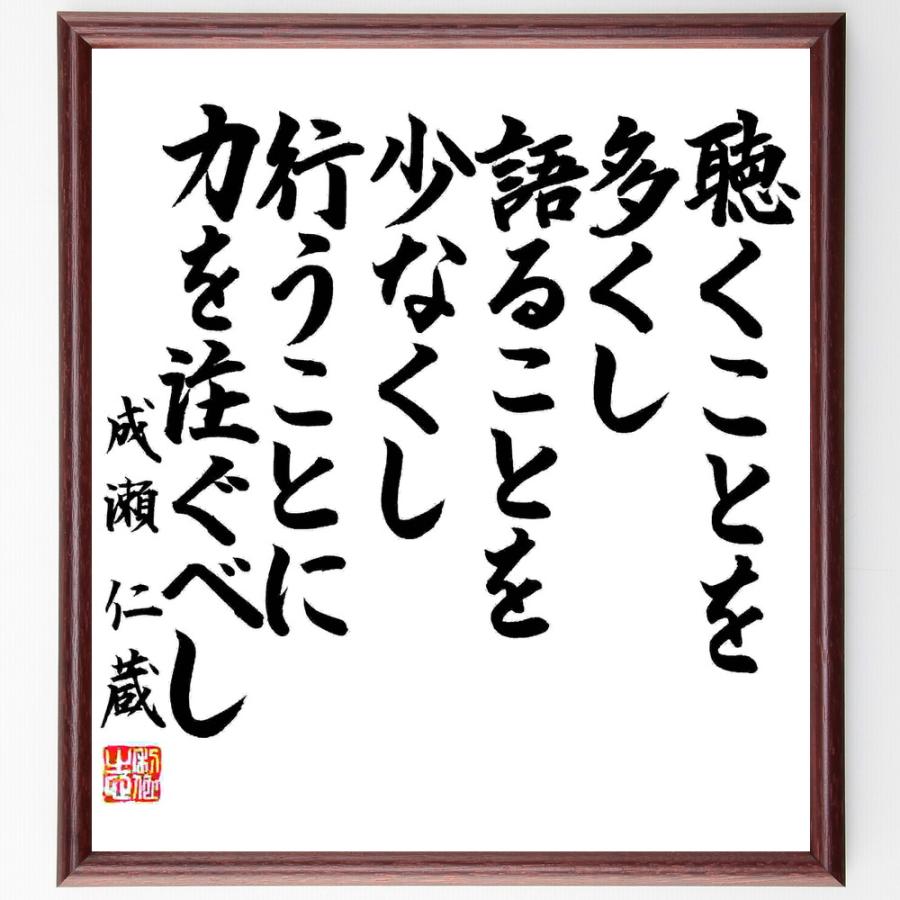 聴くことを
多くし
語ることを
少なくし
行うことに
力を注ぐべし
成瀬仁蔵